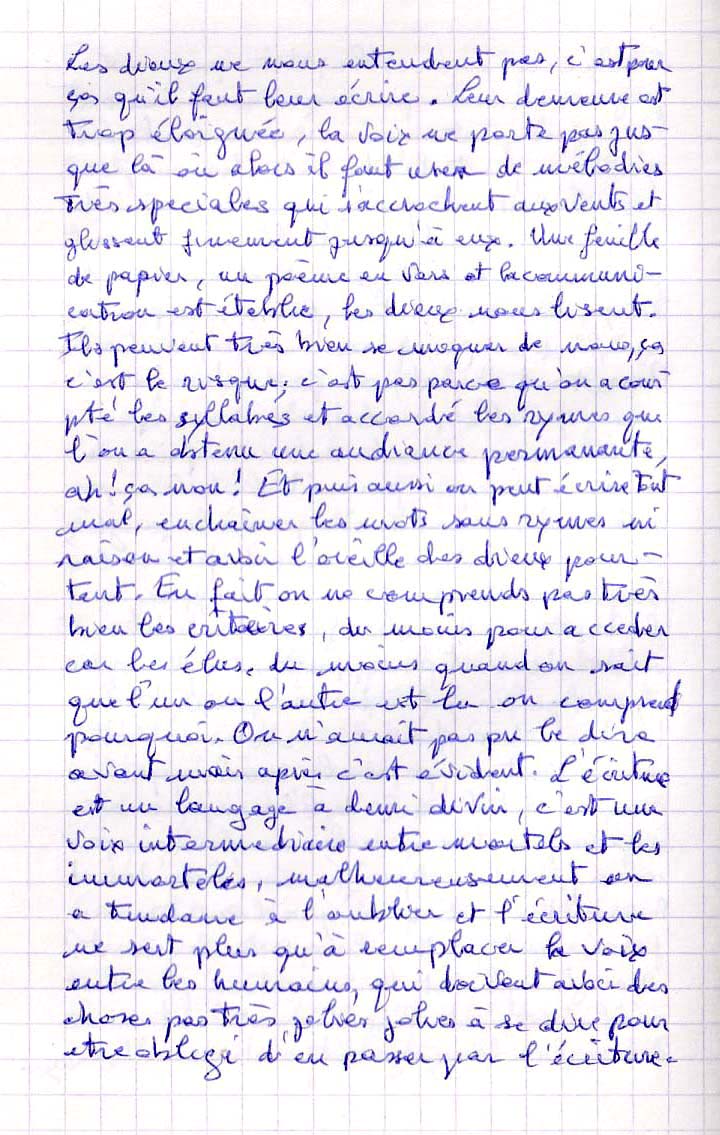 Les dieux ne nous entendent pas, c'est pour
ças qu'il faut leur écrire. Leur demeure est
trop éloignée, la voix ne porte pas jus-
que là où alors il faut user de mélodies
très speciales qui s'accrochent aux vents et
glissent finement jusqu'à eux. Une feuille
de papier, un poème en vers et la communi-
cation est établie, les dieux nous lisent.
Ils peuvent très bien se moquer de nous, ça
c'est le risque; c'est pas parce qu'on a com
pté les syllabes et accordé les rymes que
l'on a obtenu une audience permanante,
ah! ça non! Et puis aussi on peut écrire tout
mal, enchainer les mots sans rymes ni
raison et avoir l'oreille des dieux pour-
tant. En fait on ne comprends pas très
bien les critaires, du moins pour acceder
car les élus, du moins quand on sait
que l'un ou l'autre est lu on comprend
pourquoi. On n'aurait pas pu le dire
avant mais après c'est évident. L'écriture
est un langage à demi divin, c'est une
voix intermediaire entre mortels et les
immorteles, malheureusement on
a tendance à l'oublier et l'écriture
ne sert plus qu'à remplacer la voix
entre les humains, qui doivent avoir des
choses pas très jolies jolies à se dire pour
etre obligé d'en passer par l'écriture.